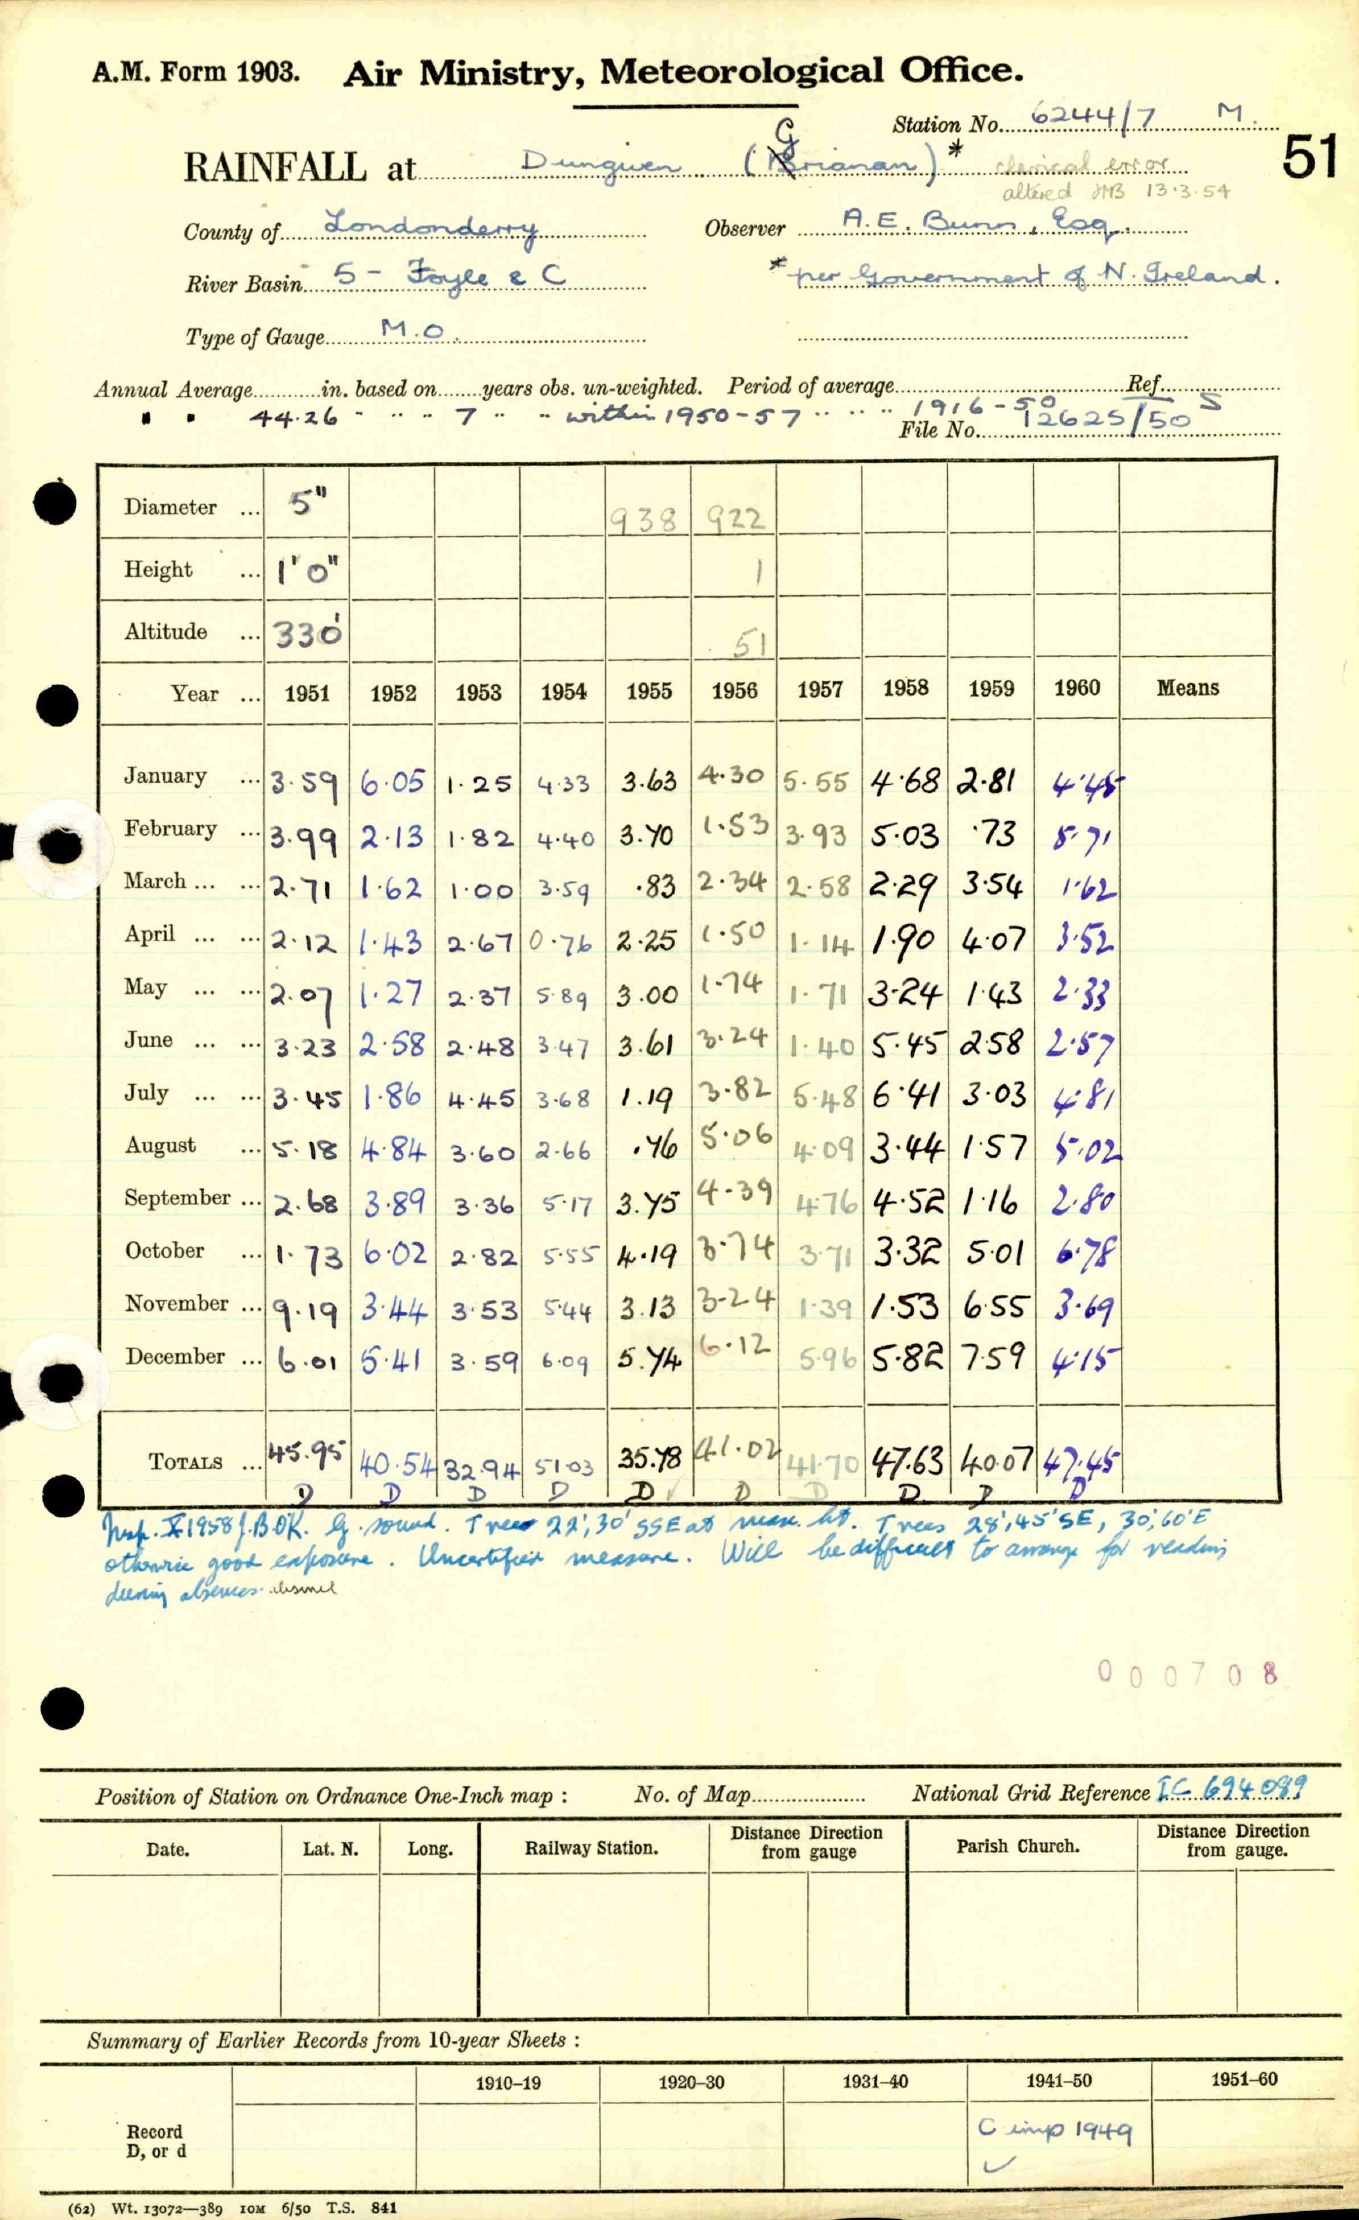 A.M. Form 1903. Air Ministry, Meteorological Office.
Station No. 6244/7 M.
51
RAINFALL at Dungiven (Grianan) * clerical error
altered JMB 13.3.54
County of Londonderry Observer A.E. Bunn, Esq.
River Basin 5 - Foyle & C * per Government of N. Ireland.
Type of Gauge M.O.
Annual Average in. based on years obs. un-weighted. Period of average Ref.
" " 44.26 " " " " 7 " " within 1950-57 " " " 1916-50 S
File No. 12625/50
Diameter ... 5" 938 922
Height ... 1'0" 1
Altitude ... 330' 51
Year ... 1951 1952 1953 1954 1955 1956 1957 1958 1959 1960 Means
January ... 3.59 6.05 1.25 4.33 3.63 4.30 5.55 4.68 2.81 4.45
February ... 3.99 2.13 1.82 4.40 3.70 1.53 3.93 5.03 .73 5.71
March ... ... 2.71 1.62 1.00 3.59 .83 2.34 2.58 2.29 3.54 1.62
April ... ... 2.12 1.43 2.67 0.76 2.25 1.50 1.14 1.90 4.07 3.52
May ... ... 2.07 1.27 2.37 5.89 3.00 1.74 1.71 3.24 1.43 2.33
June ... ... 3.23 2.58 2.48 3.47 3.61 3.24 1.40 5.45 2.58 2.57
July ... ... 3.45 1.86 4.45 3.68 1.19 3.82 5.48 6.41 3.03 4.81
August ... 5.18 4.84 3.60 2.66 .76 5.06 4.09 3.44 1.57 5.02
September ... 2.68 3.89 3.36 5.17 3.75 4.39 4.76 4.52 1.16 2.80
October ... 1.73 6.02 2.82 5.55 4.19 3.74 3.71 3.32 5.01 6.78
November ... 9.19 3.44 3.53 5.44 3.13 3.24 1.39 1.53 6.55 3.69
December ... 6.01 5.41 3.59 6.09 5.74 6.12 5.96 5.82 7.59 4.15
TOTALS ... 45.95 40.54 32.94 51.03 35.78 41.02 41.70 47.63 40.07 47.45
D D D D D D D D D D
Insp. X 1958 J.B.O'K. G. sound. Trees 22', 30' SSE at max. ht. Trees 28', 45' SE, 30', 60' E
otherwise good exposure. Uncertified measure. Will be difficult to arrange for reading
during absences.
000708
Position of Station on Ordnance One-Inch map : No. of Map National Grid Reference IC 694089
Date. Lat. N. Long. Railway Station. Distance from Direction gauge Parish Church. Distance from Direction gauge.
Summary of Earlier Records from 10-year Sheets :
1910–19 1920–30 1931–40 1941–50 1951–60
Record
D, or d
C imp 1949
✓
(62) Wt. 13072—389 10M 6/50 T.S. 841